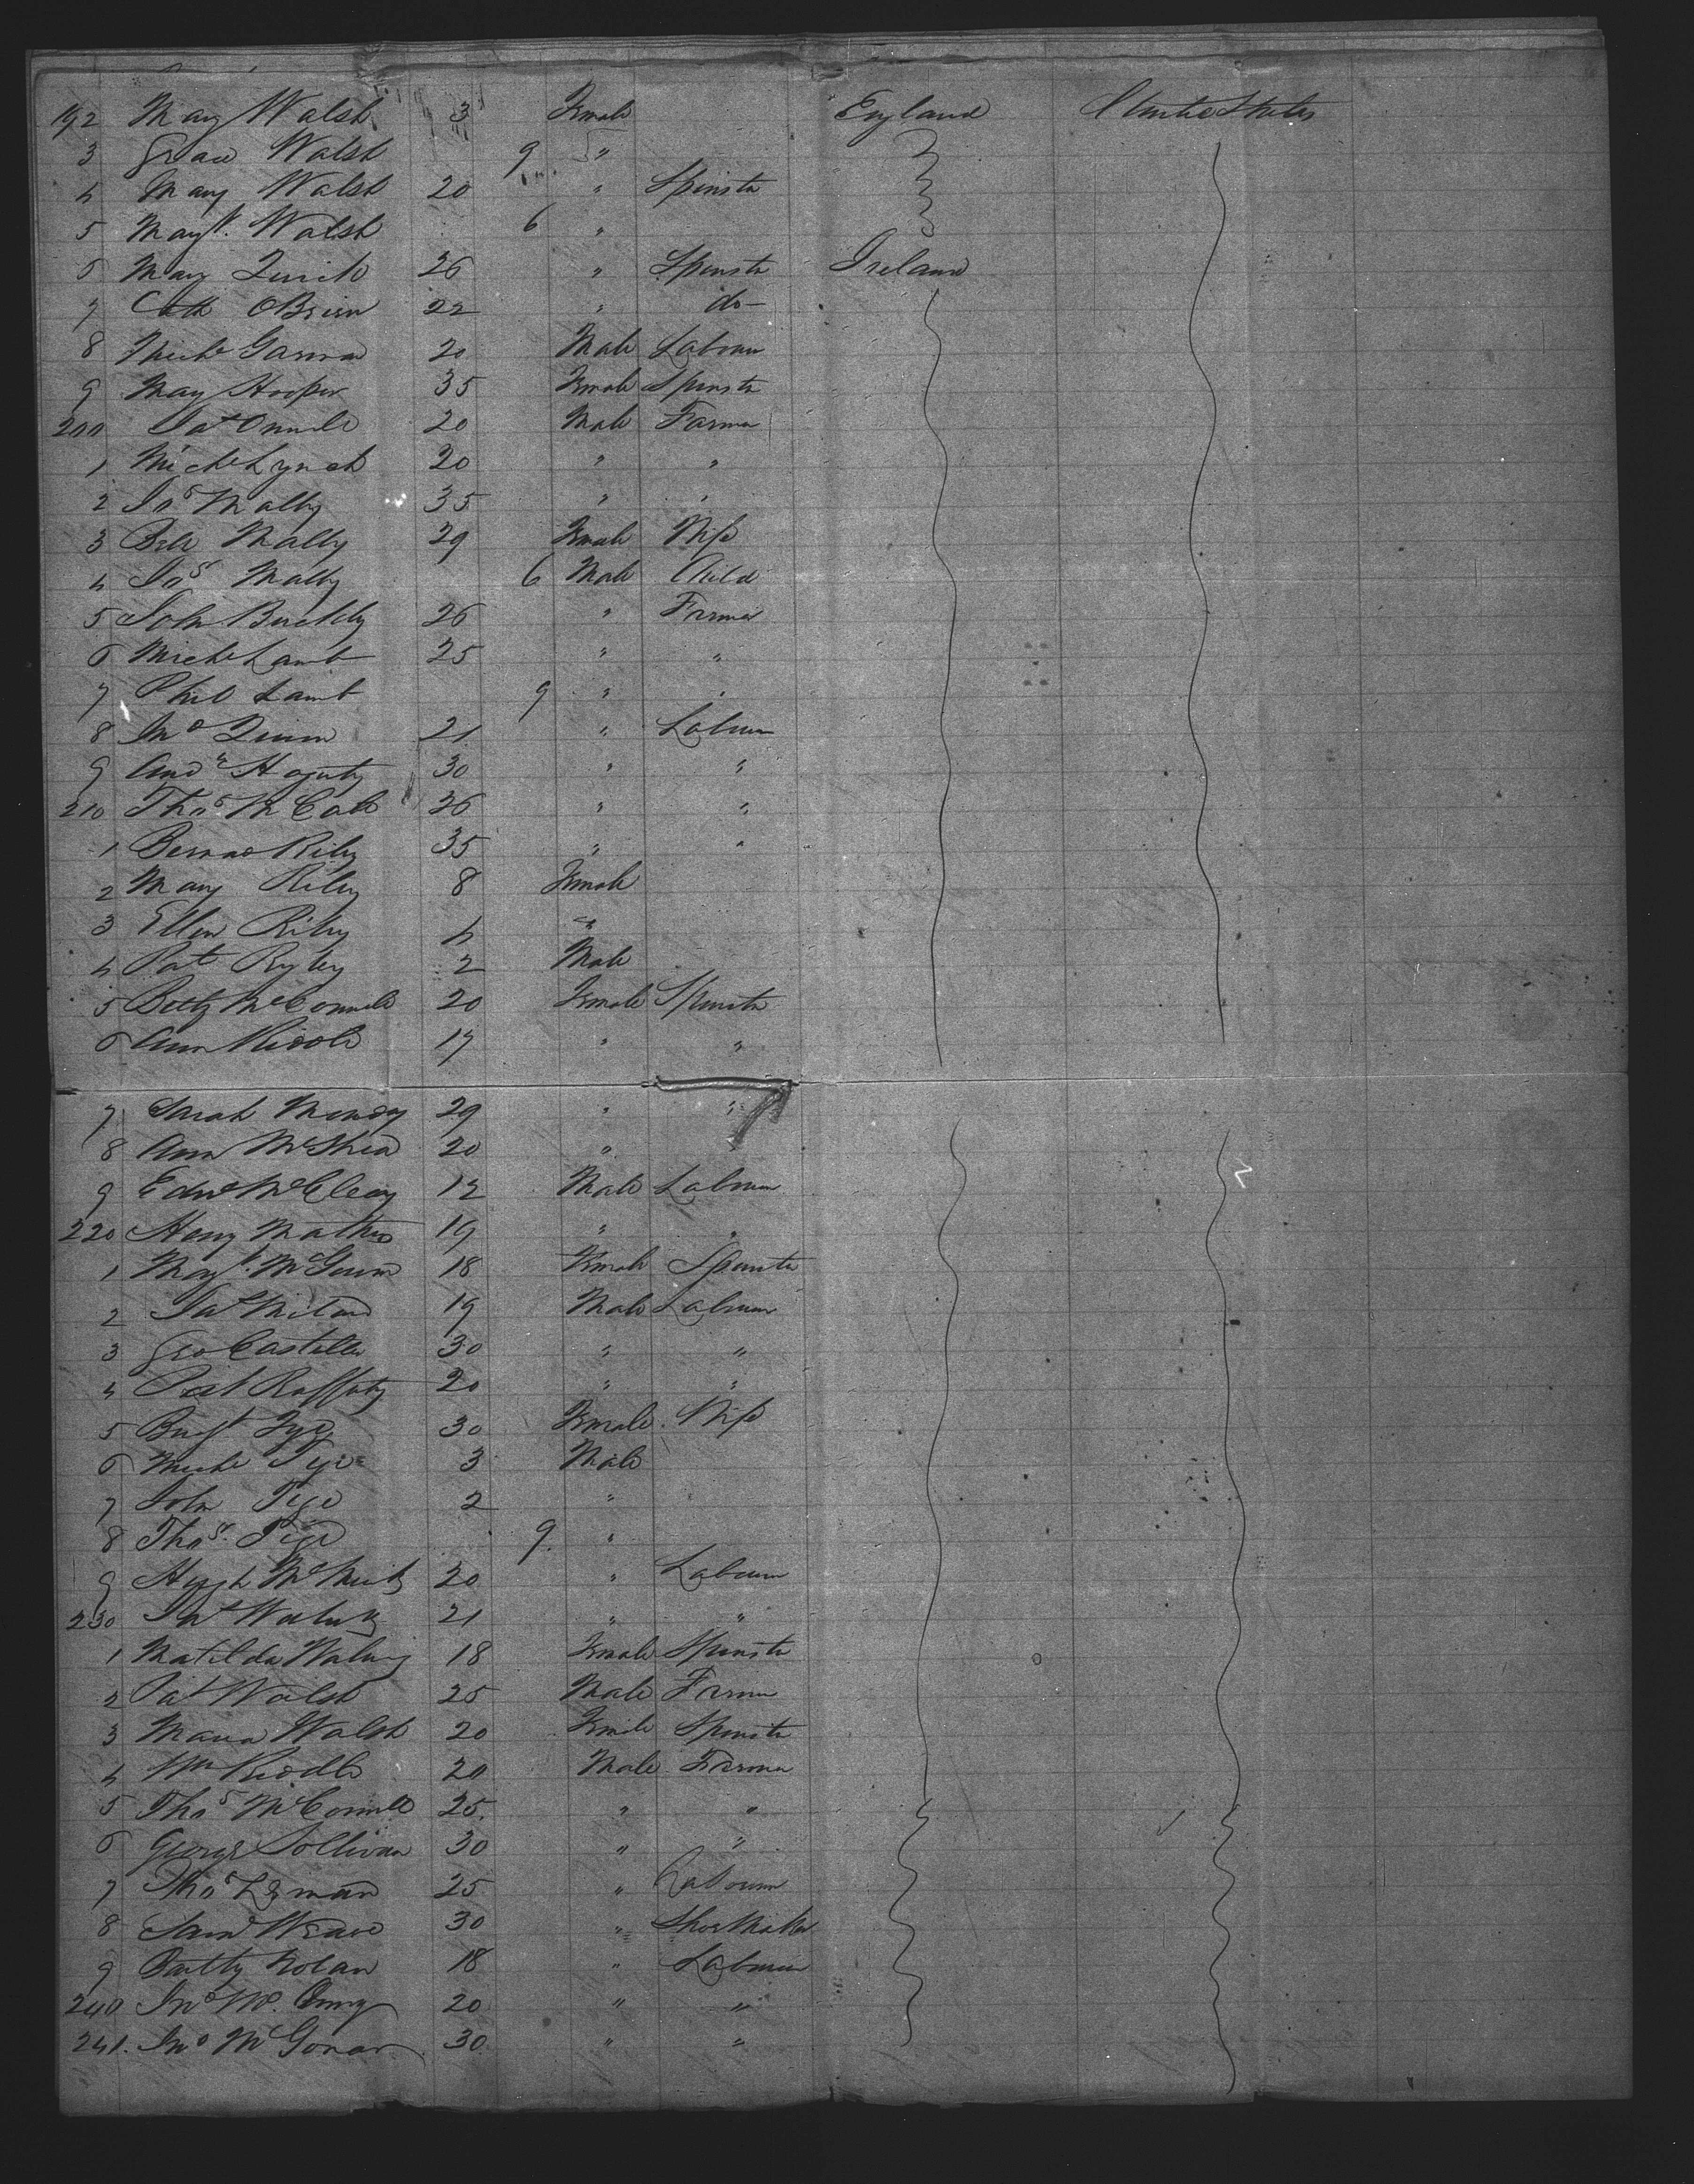 192 Mary Walsh 3 Female England United States
3 Grace Walsh 9 "
4 Mary Walsh 20 " Spinstr
5 Margt. Walsh 6 "
6 Mary Quirk 26 " Spinstr Ireland
7 Cath OBrien 22 " do
8 Michl 20 Male Labour
9 Mary Hooper 35 Female Spinstr
200 Pat 20 Male Farmer
1 Michl Lynch 20 " "
2 Jas Malby 35 " "
3 Malby 29 Female Wife
4 Jas Malby 6 Male Child
5 John Buckley 26 " Farmer
6 Michl Lamb 25 " "
7 Phil Lamb 9 " "
8 Jno Quinn 21 " Labour
9 Andw 30 " "
210 Thos McCabe 26 " "
1 Bernard Riley 35 " "
2 Mary Riley 8 Female
3 Ellen Riley 4 "
4 Pat Ryley 2 Male
5 Betty McConnell 20 Female Spinstr
6 Ann 17 " "
7 Sarah 29 " "
8 Ann McShea 20 "
9 Edwd McCleary 12 Male Labour
220 Henry 19 " "
1 Margt. McGowan 18 Female Spinstr
2 19 Male Labour
3 Geo Castello 30 " "
4 Pat Raffaty 20 " "
5 30 Female Wife
6 Michl Tige 3 Male
7 John Tige 2 "
8 Thos. Tige 9 "
9 Hugh 20 " Labour
230 21 " "
1 Matilda 18 Female Spinstr
2 Pat Walsh 25 Male Farmer
3 Maria Walsh 20 Female Spinstr
4 Wm Riddle 20 Male Farmer
5 Thos McConnell 25 " "
6 George Sollivan 30 " "
7 Thos 25 " Labourr
8 Saml 30 " Shoe Maker
9 Batty Nolan 18 " Labour
240 Jno 20 " "
241. Jno McGowan 30 " "